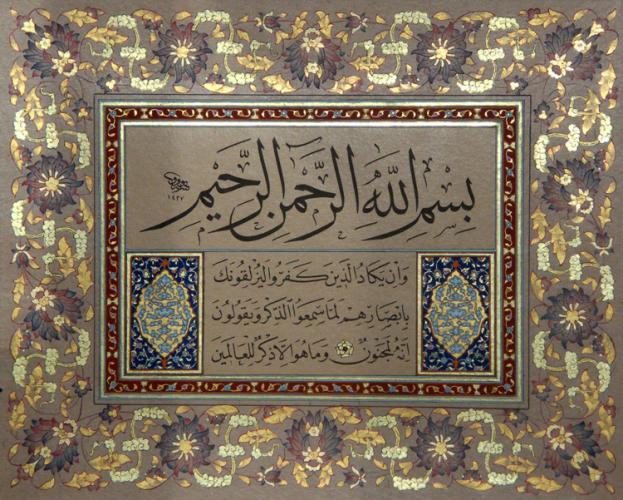 بِسْمِ اللّٰهِ الرَّحْمٰنِ الرَّحِيْمِ
١٤٢٧
وَاِنْ يَكَادُ الَّذِينَ كَفَرُوا لَيُزْلِقُونَكَ
بِاَبْصَارِهِمْ لَمَّا سَمِعُوا الذِّكْرَ وَيَقُولُونَ
اِنَّهُ لَمَجْنُونٌ وَمَا هُوَ اِلَّا ذِكْرٌ لِلْعَالَمِينَ